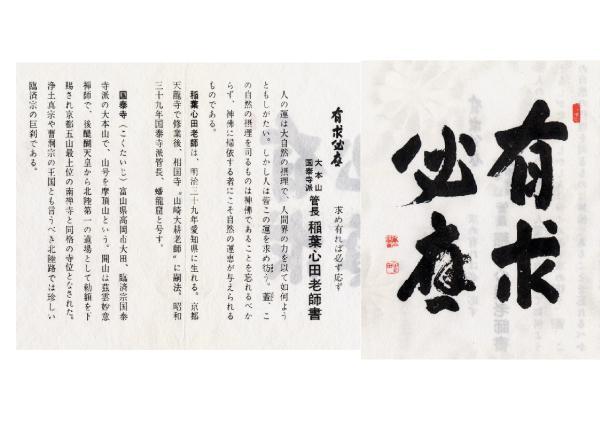 有求
必應
有求必應
求め有れば必ず応ず
大本山
国泰寺派
管長 稲葉心田老師書
人の運は大自然の摂理で、人間界の力を以て如何よう
ともしがたい。しかし人は皆この運を求め彷う。蓋、こ
の自然の摂理を司るものは神佛であることを忘れるべか
らず、神佛に帰依する者にこそ自然の運恵が与えられる
ものである。
稲葉心田老師は、明治三十九年愛知県に生れる。京都
天龍寺で修業後、相国寺〝山崎大耕老師〟に嗣法、昭和
三十九年国泰寺派管長、蟠龍窟と号す。
国泰寺(こくたいじ)富山県高岡市太田、臨済宗国泰
寺派の大本山で、山号を摩頂山という。開山は慈雲妙意
禅師で、後醍醐天皇から北陸第一の道場として勅額を下
賜され京都五山最上位の南禅寺と同格の寺位となされた。
浄土真宗や曹洞宗の王国とも言うべき北陸路では珍しい
臨済宗の巨刹である。